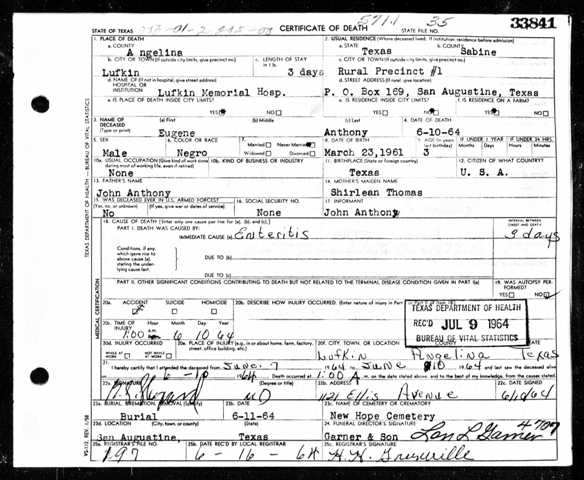 STATE OF TEXAS
CERTIFICATE OF DEATH
STATE FILE NO.
35
33841
1. PLACE OF DEATH
a. COUNTY
Angelina
2. USUAL RESIDENCE (Where deceased lived. If institution: residence before admission)
a. STATE
Texas
b. COUNTY
Sabine
b. CITY OR TOWN (If outside city limits, give precinct no.)
Lufkin
c. LENGTH OF STAY
3 days
c. CITY OR TOWN (If outside city limits, give precinct no.)
Rural Precinct #1
d. NAME OF (If not in hospital, give street address)
HOSPITAL OR
INSTITUTION
Lufkin Memorial Hosp.
d. STREET ADDRESS (If rural, give location)
P. O. Box 169, San Augustine, Texas
e. IS PLACE OF DEATH INSIDE CITY LIMITS?
YES NO
e. IS RESIDENCE INSIDE CITY LIMITS?
YES NO
f. IS RESIDENCE ON A FARM?
YES NO
3. NAME OF
DECEASED
(Type or print)
(a) First
Eugene
(b) Middle
(c) Last
Anthony
4. DATE OF DEATH
6-10-64
5. SEX
Male
6. COLOR OR RACE
Negro
7. Married Never Married
Widowed Divorced
8. DATE OF BIRTH
March 23,1961
9. AGE (In years
last birthday)
3
IF UNDER 1 YEAR
Months Days
IF UNDER 24 HRS.
Hours Min.
10a. USUAL OCCUPATION (Give kind of work done
during most of working life, even if retired)
None
10b. KIND OF BUSINESS OR INDUSTRY
11. BIRTHPLACE (State or foreign country)
Texas
12. CITIZEN OF WHAT COUNTRY?
U. S. A.
13. FATHER'S NAME
John Anthony
14. MOTHER'S MAIDEN NAME
Shirlean Thomas
15. WAS DECEASED EVER IN U.S. ARMED FORCES?
(Yes, no, or unknown) (If yes, give war or dates of service)
No
16. SOCIAL SECURITY NO.
None
17. INFORMANT
John Anthony
18. CAUSE OF DEATH [Enter only one cause per line for (a), (b), and (c).]
PART I. DEATH WAS CAUSED BY:
IMMEDIATE CAUSE (a)
Enteritis
INTERVAL BETWEEN
ONSET AND DEATH
3 days
Conditions, if any,
which gave rise to
above cause (a),
stating the under-
lying cause last.
DUE TO (b)
DUE TO (c)
PART II. OTHER SIGNIFICANT CONDITIONS CONTRIBUTING TO DEATH BUT NOT RELATED TO THE TERMINAL DISEASE CONDITION GIVEN IN PART I(a)
19. WAS AUTOPSY PER-
FORMED?
YES NO
20a. ACCIDENT SUICIDE HOMICIDE
20b. DESCRIBE HOW INJURY OCCURRED. (Enter nature of injury in Part I or Part II of item 18)
TEXAS DEPARTMENT OF HEALTH
REC'D JUL 9 1964
BUREAU OF VITAL STATISTICS
20c. TIME OF
INJURY
Hour Month Day Year
1:00 a.m. 6 10 64
20d. INJURY OCCURRED
WHILE AT WORK NOT WHILE AT WORK
20e. PLACE OF INJURY (e.g., in or about home, farm, factory,
street, office building, etc.)
20f. CITY, TOWN, OR LOCATION COUNTY STATE
Lufkin Angelina Texas
21. I hereby certify that I attended the deceased from June 7 1964 to June 10 1964 and last saw the deceased alive
on 6-10 1964. Death occurred at 1:00 A m. on the date stated above, and to the best of my knowledge, from the causes stated.
22a. SIGNATURE
(Degree or title)
MD
22b. ADDRESS
1121 Ellis Avenue
22c. DATE SIGNED
23a. BURIAL, CREMATION, REMOVAL (Specify)
Burial
23b. DATE
6-11-64
23c. NAME OF CEMETERY OR CREMATORY
New Hope Cemetery
23d. LOCATION (City, town, or county) (State)
San Augustine, Texas
24. FUNERAL DIRECTOR'S SIGNATURE
Garner & Son
Lon L Garner
4707
25a. REGISTRAR'S FILE NO.
197
25b. DATE REC'D BY LOCAL REGISTRAR
6-16-64
25c. REGISTRAR'S SIGNATURE
TEXAS DEPARTMENT OF HEALTH — BUREAU OF VITAL STATISTICS
MEDICAL CERTIFICATION